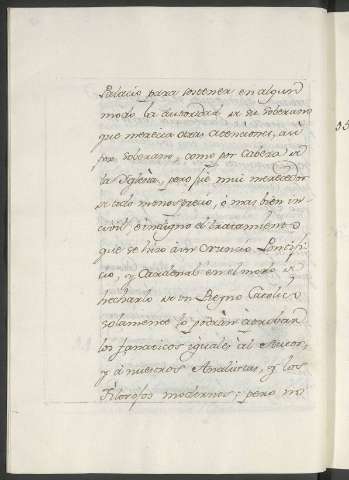 Palacio para sostener en algun
modo la autoridad de su soberano
que merecia otras atenciones, asi
por soberano, como por Cabeza de
la Iglesia, pero fue mui merecedor
de todo menosprecio, ó mas bien in-
civil, e indigno el tratamiento
que se hizo à un Ministro Pontifi-
cio, y Cardenal en el modo de
hecharlo de un Reyno Catolico
solamente lo podràn aprobar
los fanaticos iguales al Autor,
y à nuestros Analistas, y los
Filosofos modernos; pero no